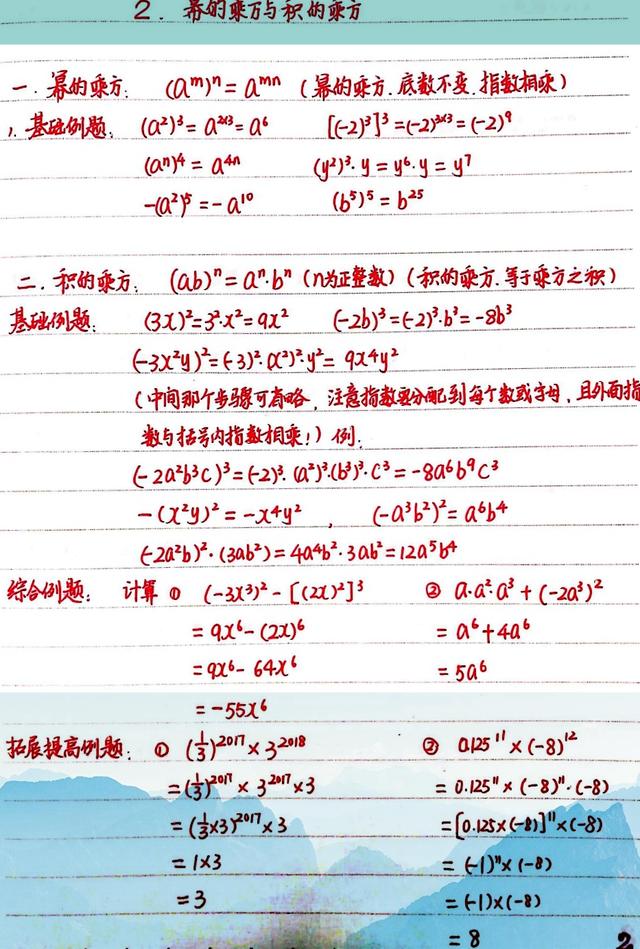 2. 幂的乘方与积的乘方
一. 幂的乘方: (aᵐ)ⁿ = aᵐⁿ (幂的乘方.底数不变.指数相乘)
1. 基础例题: (a²)³ = a²ˣ³ = a⁶ [(-2)³]³ = (-2)³ˣ³ = (-2)⁹
(aⁿ)⁴ = a⁴ⁿ (y²)³·y = y⁶·y = y⁷
-(a²)⁵ = -a¹⁰ (b⁵)⁵ = b²⁵
二. 积的乘方: (ab)ⁿ = aⁿ·bⁿ (n为正整数) (积的乘方.等于乘方之积)
基础例题: (3x)² = 3²·x² = 9x² (-2b)³ = (-2)³·b³ = -8b³
(-3x²y)² = (-3)²·(x²)²·y² = 9x⁴y²
(中间那个步骤可省略, 注意指数要分配到每个数或字母, 且外面指
数与括号内指数相乘!) 例:
(-2a²b³c)³ = (-2)³·(a²)³·(b³)³·c³ = -8a⁶b⁹c³
-(x²y)² = -x⁴y² , (-a³b²)² = a⁶b⁴
(-2a²b)²·(3ab²) = 4a⁴b²·3ab² = 12a⁵b⁴
综合例题: 计算 ① (-3x³)² - [(2x)²]³ ② a·a²·a³ + (-2a³)²
= 9x⁶ - (2x)⁶ = a⁶ + 4a⁶
= 9x⁶ - 64x⁶ = 5a⁶
= -55x⁶
拓展提高例题: ① (1/3)²⁰¹⁷ × 3²⁰¹⁸ ② 0.125¹¹ × (-8)¹²
= (1/3)²⁰¹⁷ × 3²⁰¹⁷ × 3 = 0.125¹¹ × (-8)¹¹·(-8)
= (1/3×3)²⁰¹⁷ × 3 = [0.125×(-8)]¹¹ × (-8)
= 1×3 = (-1)¹¹ × (-8)
= 3 = (-1)×(-8)
= 8 2